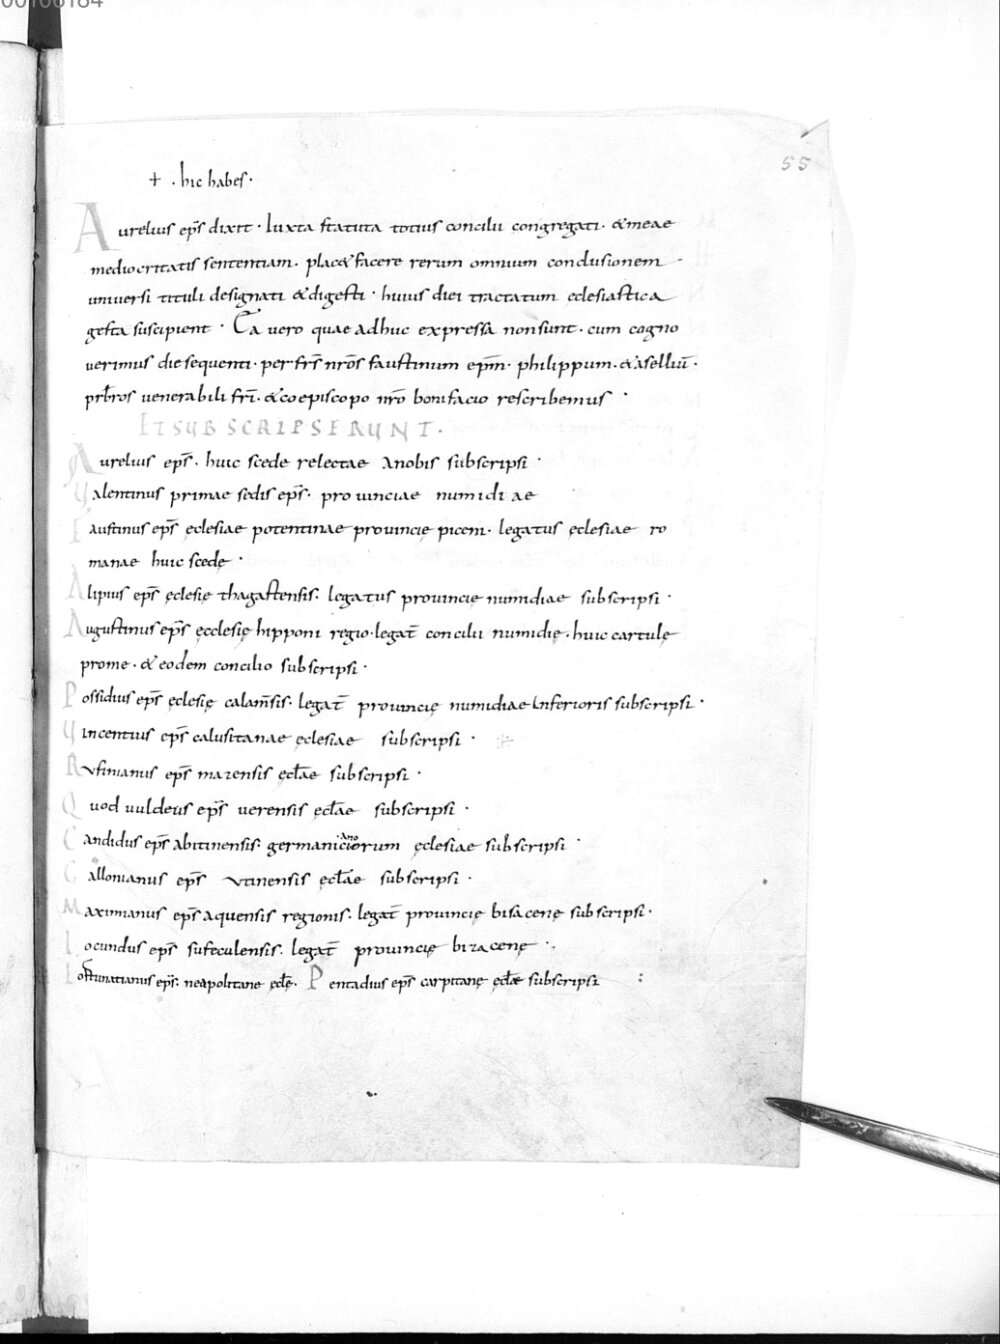 00106184
55
+ . hic habes .
Aurelius ep̄s dixit . Iuxta statuta totius concilii congregati . & meae
mediocritatis sententiam . plac& facere rerum omnium conclusionem .
universi tituli designati & digesti . huius diei tractatum ęclesiastica
gesta suscipient . Ea vero quae adhuc expressa non sunt . cum cogno
verimus die sequenti . per fr̄s nr̄os faustinum ep̄m . philippum . & aselliū .
prb̄ros venerabili fr̄i . & coepiscopo nr̄o bonifacio rescribemus .
ET SUBSCRIPSERUNT .
Aurelius ep̄s . huic scede relectae a nobis subscripsi .
Valentinus primae sedis ep̄s . provinciae numidiae
Faustinus ep̄s eclesiae potentinae provincię piceni . legatus ęclesiae ro
manae huic scedę .
Alipius ep̄s ęclesię thagastensis . legatus provincię numidiae subscripsi .
Augustinus ep̄s ęcclesię hipponi regio . legat̄ concilii numidię . huic cartulę
pro me . & eodem concilio subscripsi .
Possidius ep̄s ęclesię calam̄sis . legat̄ provincię numidiae inferioris subscripsi .
Vincentius ep̄s calusitanae ęclesiae subscripsi .
Rufinianus ep̄s mazensis ęcl̄ae subscripsi .
Quod uuldeus ep̄s verensis ęcl̄ae subscripsi .
Candidus ep̄s abitinensis . germaniciorum ęclesiae subscripsi .
ano
Gallonianus ep̄s uainensis ęcl̄ae subscripsi .
Maximianus ep̄s aquensis regionis . legat̄ provincię bisacenę subscripsi .
Iocundus ep̄s sufeculensis . legat̄ provincię bizacenę .
Fortunatianus ep̄s . neapolitane ęcl̄ę . Pentadius ep̄s carpitanę ęcl̄ę subscripsi :